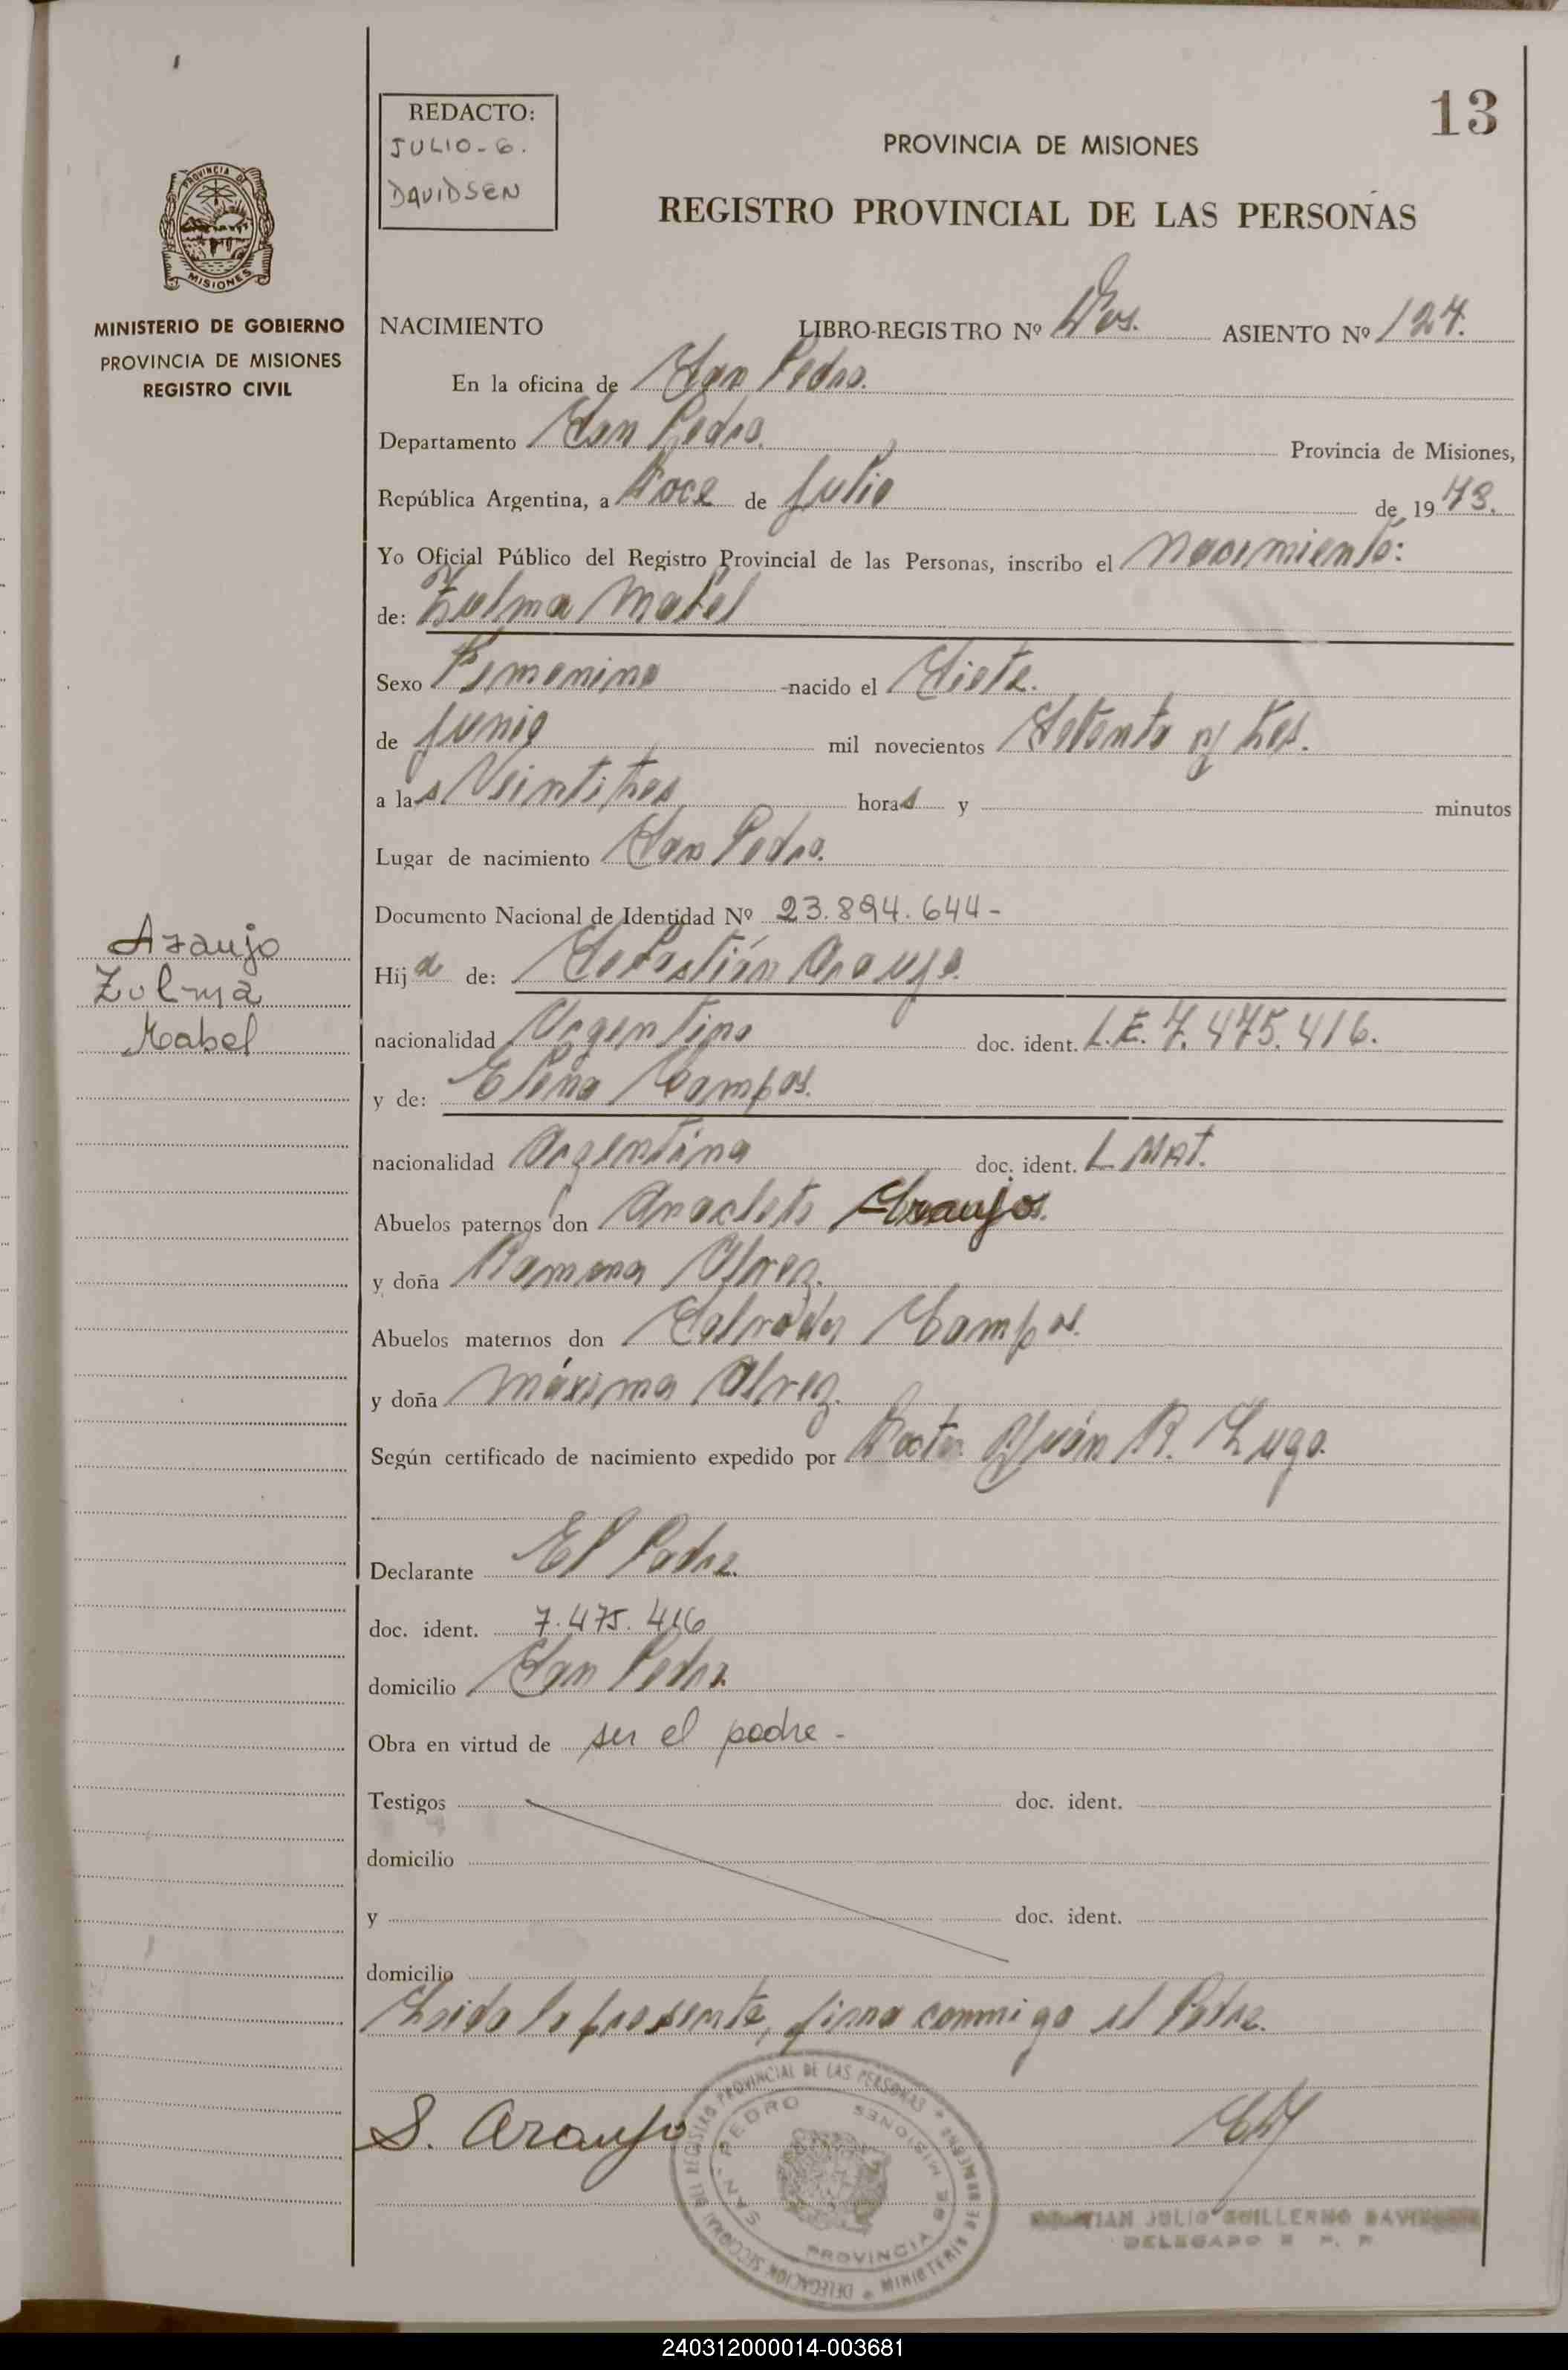 13
REDACTO:
JULIO-G.
DAVIDSEN
PROVINCIA DE MISIONES
REGISTRO PROVINCIAL DE LAS PERSONAS
PROVINCIA DE
MISIONES
MINISTERIO DE GOBIERNO
PROVINCIA DE MISIONES
REGISTRO CIVIL
NACIMIENTO LIBRO-REGISTRO Nº Dos. ASIENTO Nº 124.
En la oficina de San Pedro.
Departamento San Pedro. Provincia de Misiones,
República Argentina, a Doce de Julio de 1973.
Yo Oficial Público del Registro Provincial de las Personas, inscribo el Nacimiento:
de: Zulma Mabel
Sexo Femenino -nacido el Siete.
de Junio mil novecientos Setenta y tres.
a las Veintitres horas y minutos
Lugar de nacimiento San Pedro.
Documento Nacional de Identidad Nº 23.894.644-
Araujo
Zulma
Mabel
Hija de: Sebastián Araujo.
nacionalidad Argentino doc. ident. L.E. 7.475.416.
y de: Elena Campos.
nacionalidad Argentina doc. ident. L. MAT.
Abuelos paternos don Anacleto Araujo.
y doña Ramona Alvez.
Abuelos maternos don Salvador Campos.
y doña Máxima Alvez.
Según certificado de nacimiento expedido por Doctor Juán R. Lugo.
Declarante El Padre.
doc. ident. 7.475.416
domicilio San Pedro.
Obra en virtud de ser el padre-
Testigos doc. ident.
domicilio
y doc. ident.
domicilio
Leida la presente, firma conmigo el Padre.
S. Araujo
DELEGACION SECCIONAL DEL REGISTRO PROVINCIAL DE LAS PERSONAS * MINISTERIO DE GOBIERNO
SAN PEDRO
PROVINCIA DE MISIONES
JULIO GUILLERMO DAVIDSEN
DELEGADO R. P. P.
240312000014-003681